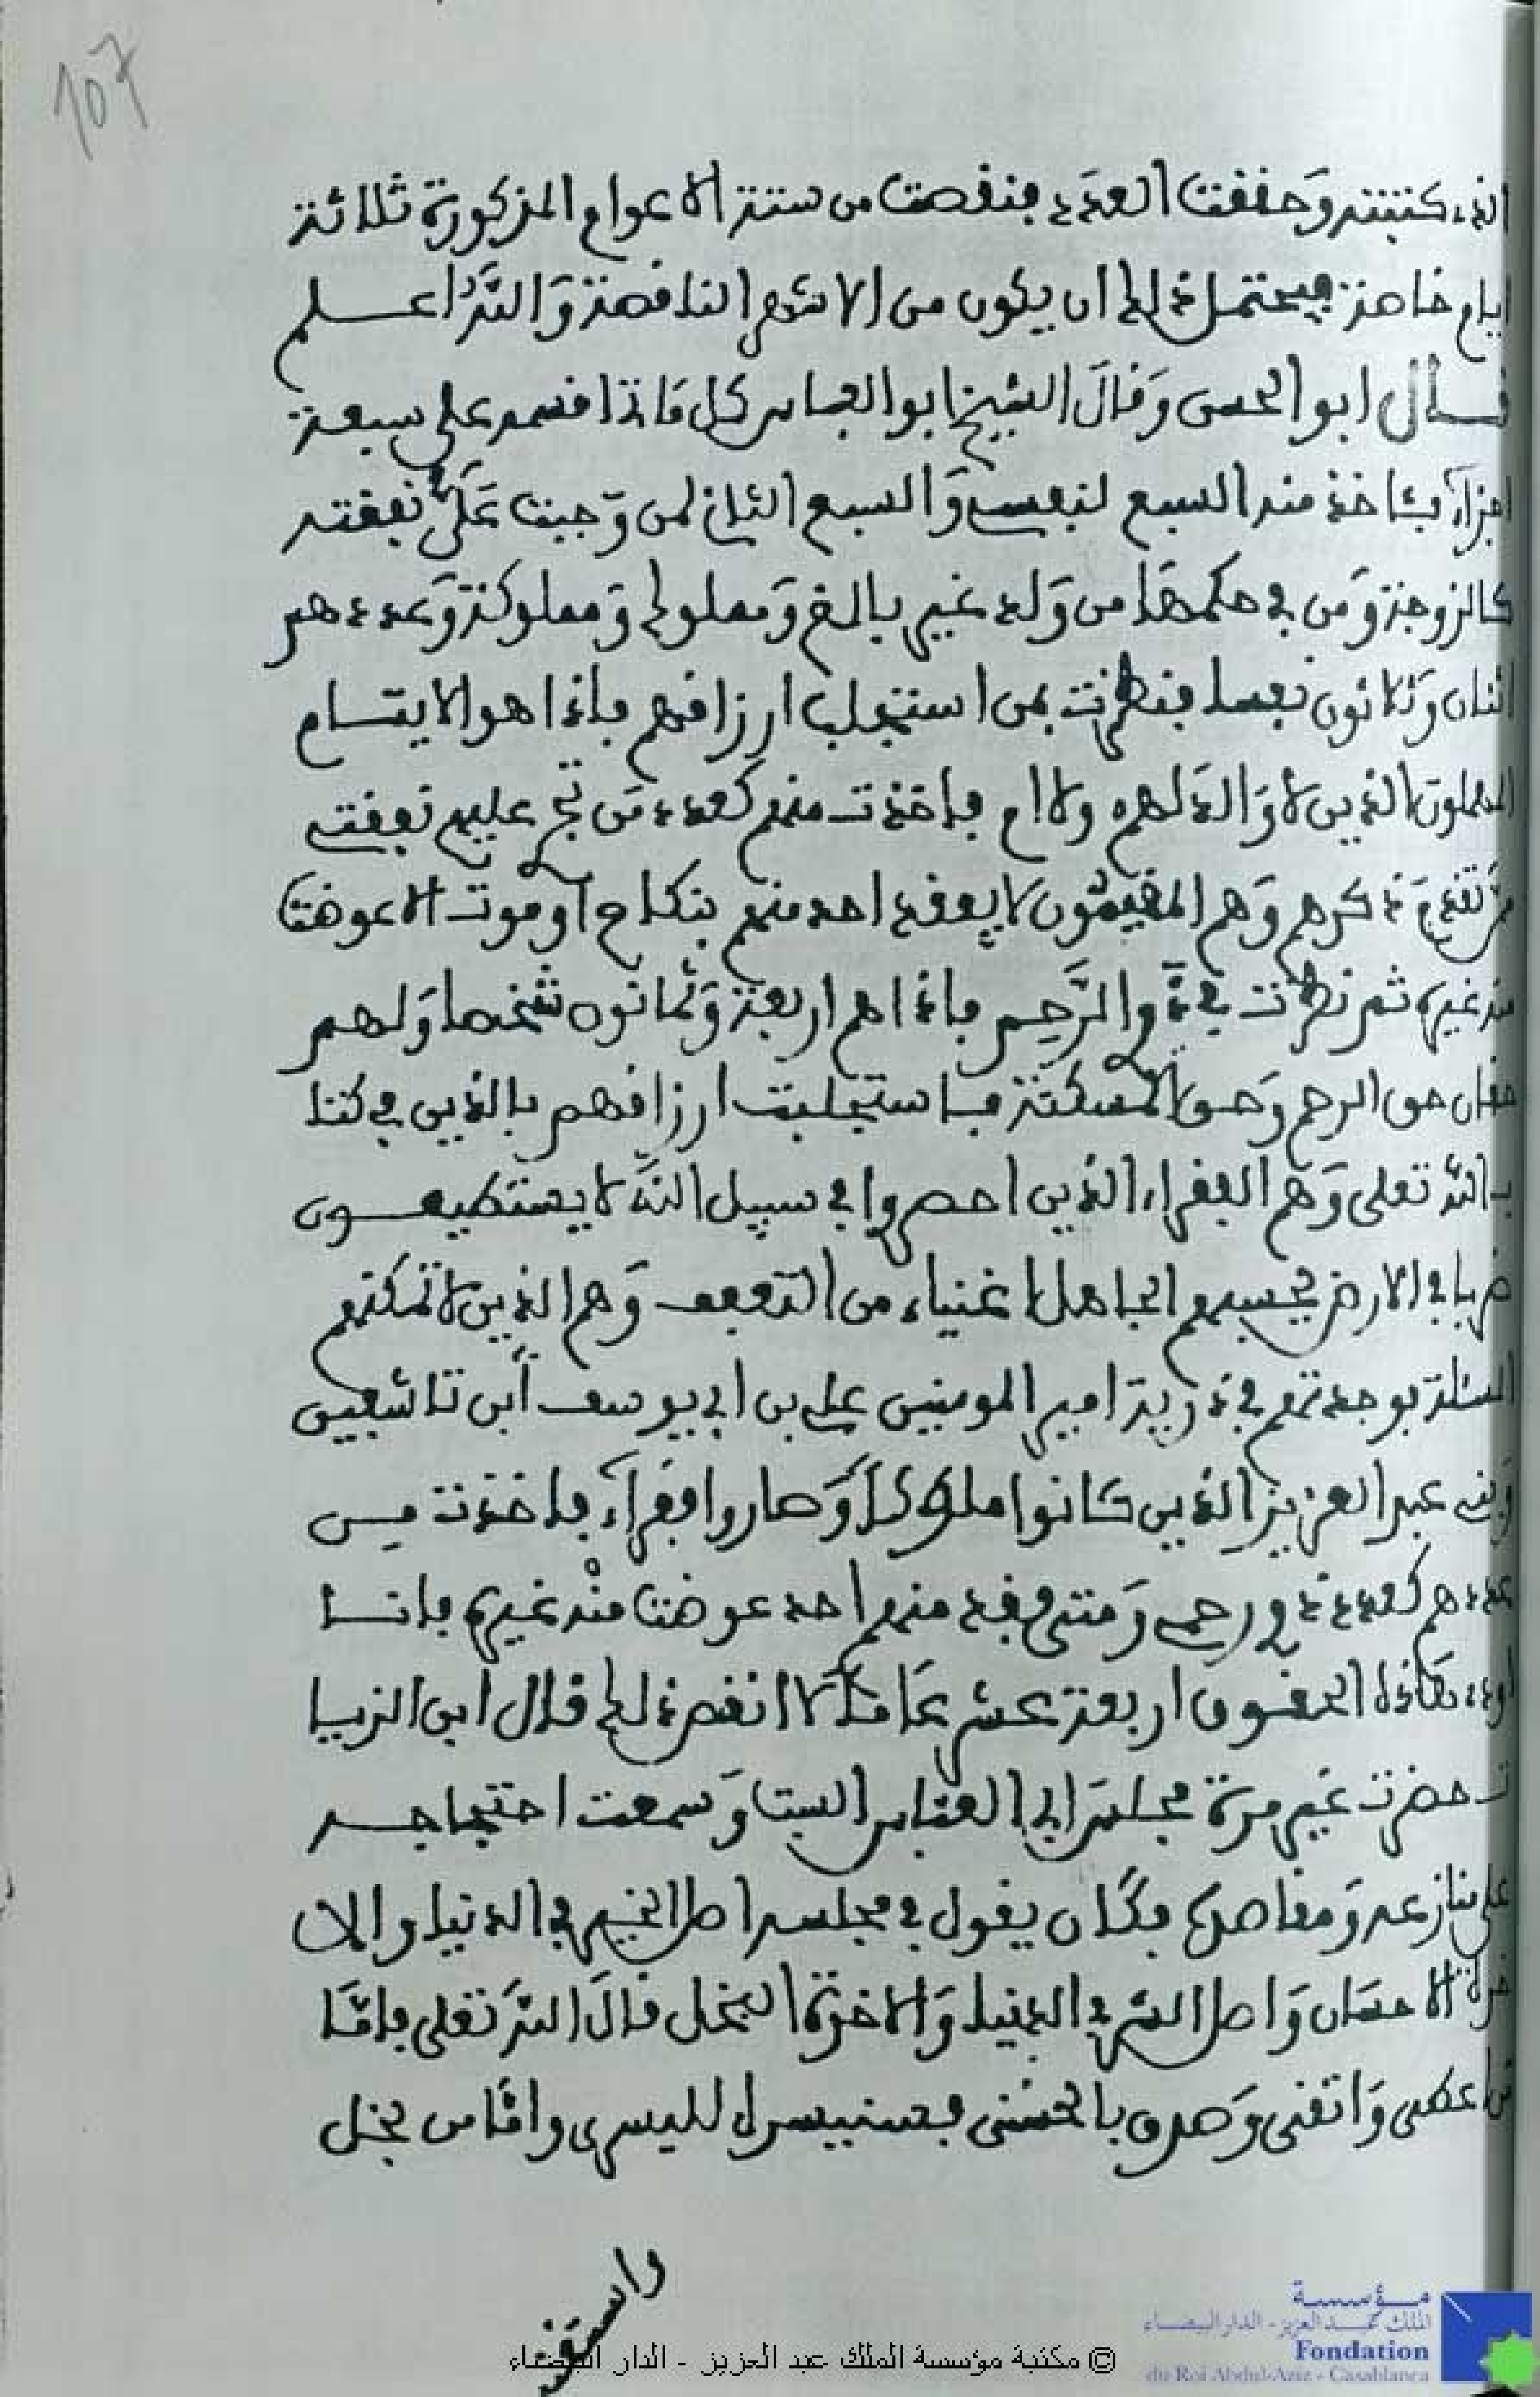 107
الذي كتبته وحققت العدد فنقصت من ستة الاعوام المذكورة ثلاثة
ايام خاصة فيحتمل ذلك ان يكون من الاشهر الناقصة وَاللَّه اعلم
قال ابو الحسن وَقالَ الشيخ ابو العباس كل مَا ذا قسمه على سبعة
اجزآء فئاخذ منه السبع لنفسي وَالسبع الثاني لمن وَجبت عَلَيَّ نفقته
كالزوجة وَمن في حكمهَا من وَلد غير بالغ وَمملوك وَمملوكة وَعددهم
اثنان وَثلاثون نفسا فنظرت بمن استجلب ارزاقهم فإذا هو الايتام
المهملون الذين لا وَالد لهم ولا ام فاخذت منهم كعدد من تجب عليهم نفقتي
مَن تقدم ذكرهم وَهم المقيمُون لا يفقد احد منهم بنكاح أو موت الا عوضت
منه غيره ثم نظرت في ذَوِي الرَّحِم فإذا هم اربعة وَثمانون شخصا وَلهم
حقان حق الرحم وَحق المسكنة فاستجلبت ارزاقهم بالذين في كتا
ب اللّه تعلى وَهم الفقراء الذين احصروا في سبيل اللَّه لا يستطيعون
ضربا في الارض يحسبهم الجاهل اغنياء من التعفف وَهم الذين لا تمكنهم
المسئلة فوجدتهم في ذرية امير المومنين علي بن ابي يوسف أبن تاشفين
وَبني عبد العزيز الذين كانوا ملوكاً وَصاروا فقرآء فاخذت من
عددهم كعدد ذوي رحمي وَمتى فقد منهم احد عوضت منْه غيره فانا
اودي هَاذه الحقوق اربعة عشر عَامًا لا انقص ذلك قال ابن الزيا
ت حضرت غَير مرة مجلسَ ابي العبَّاس السبتي وَسمعت احتجاجه
على منازعه وَمقاصده فكَان يقول في مجلسه اصل الخير في الدنيا والا
خرة الاحسَان وَاصل الشر في الدنيا وَالاخرة البخل قالَ اللَّه تعلى فامَّا
من اعطى وَاتقى وَصدق بالحُسنى فسنيسره لليسرى وامَّا من بخل
واستغنى
© مكتبة مؤسسة الملك عبد العزيز - الدار البيضاء
مؤسسة
الملك عبد العزيز - الدار البيضاء
Fondation
du Roi Abdul-Aziz - Casablanca